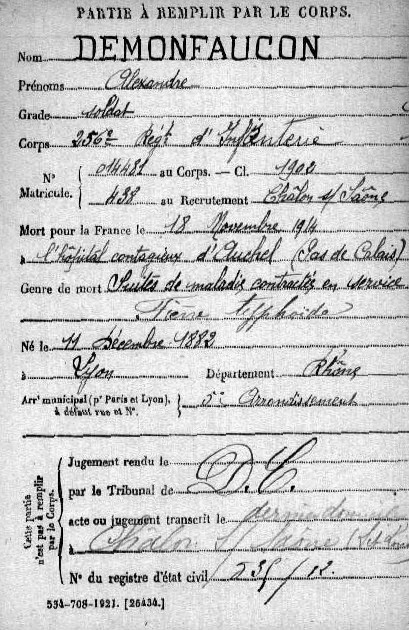 PARTIE À REMPLIR PAR LE CORPS.
Nom DEMONFAUCON
Prénoms Alexandre
Grade soldat
Corps 256e Régt d'Infanterie
N° Matricule. 014481 au Corps. — Cl. 1902
438 au Recrutement Châlon s/ Saône
Mort pour la France le 18 Novembre 1914
à l'hôpital contagieux d'Auchel (Pas de Calais)
Genre de mort Suites de maladie contractée en service
Fièvre typhoïde
Né le 11 Décembre 1882
à Lyon Département Rhône
Arrt municipal (pr Paris et Lyon), à défaut rue et N°. 5e Arrondissement
Cette partie n'est pas à remplir par le Corps.
Jugement rendu le
par le Tribunal de D.C.
acte ou jugement transcrit le dernier domicile
à Chalon s/ Saône
N° du registre d'état civil 535/12.
534-708-1921. [26434.]